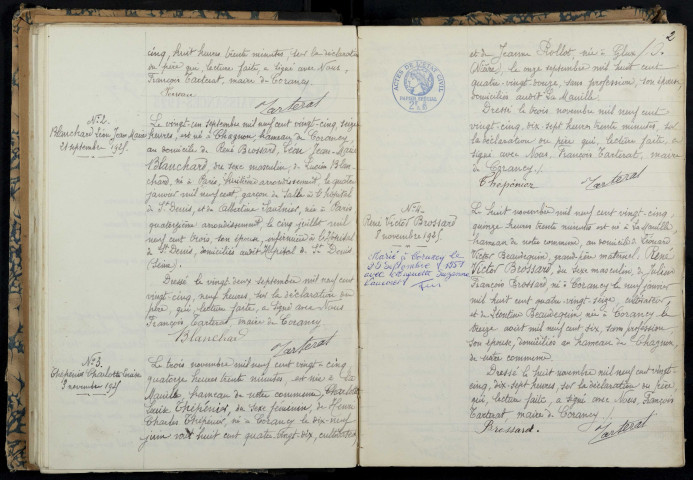 cinq, huit heures trente minutes, sur la déclaration
du père qui, lecture faite, a signé avec Nous,
François Tarterat, maire de Corancy.
Tarterat
N° 2.
Blanchard Léon Jean Marie
21 septembre 1925.
Le vingt-un septembre mil neuf cent vingt-cinq, seize
heures, est né à Chaznon, hameau de Corancy,
au domicile de René Brossard, Léon Jean-Marie
Blanchard, du sexe masculin, de Lucien Blan-
chard, né à Paris, huitième arrondissement, le quatre
janvier mil neuf cent, garçon de salle à l'hôpital
de St Denis, et de Albertine Saulnier, née à Paris
quatorzième arrondissement, le cinq juillet mil
neuf cent trois, son épouse, infirmière à l'hôpital
de St Denis, domiciliés audit Hôpital de St Denis
(Seine).
Dressé le vingt-deux septembre mil neuf cent
vingt-cinq, neuf heures, sur la déclaration du
père, qui, lecture faite, a signé avec Nous
François Tarterat, maire de Corancy.
Blanchard
Tarterat
N° 3.
Thépénier Charlotte Lucie
3 novembre 1925
Le trois novembre mil neuf cent vingt-cinq
quatorze heures trente minutes, est née à La
Manille, hameau de notre commune, Charlotte
Lucie Thépénier, du sexe féminin, de Henri
Charles Thépénier, né à Corancy le dix-neuf
juin mil huit cent quatre-vingt-dix, cultivateur
2
et de Jeanne Rollot, née à Flez
(Nièvre) le onze septembre mil huit cent
quatre-vingt-douze, sans profession, son épouse,
domiciliés audit La Manille.
Dressé le trois novembre mil neuf cent
vingt-cinq, dix-sept heures trente minutes, sur
la déclaration du père qui, lecture faite, a
signé avec Nous, François Tarterat, maire
de Corancy.
Thépénier
Tarterat
ACTES DE L'ETAT CIVIL
PAPIER SPECIAL
N° 4.
René Victor Brossard
8 novembre 1925.
Marié à Corancy le
septembre 1951
avec Huguette Suzanne
Le huit novembre mil neuf cent vingt-cinq,
quinze heures trente minutes est né à La Manille,
hameau de notre commune, au domicile d'Edouard
Victor Beaurequin, grand-père maternel, René
Victor Brossard, du sexe masculin, de Julien
François Brossard né à Corancy le neuf janvier
mil huit cent quatre-vingt-seize, cultivateur
et de Léontine Beaurequin, née à Corancy le
douze août mil neuf cent six, sans profession,
son épouse, domiciliés au hameau de Chaznon,
de notre commune.
Dressé le huit novembre mil neuf cent vingt-
cinq, dix-sept heures, sur la déclaration du père,
qui, lecture faite, a signé avec Nous, François
Tarterat, maire de Corancy.
Brossard.
Tarterat